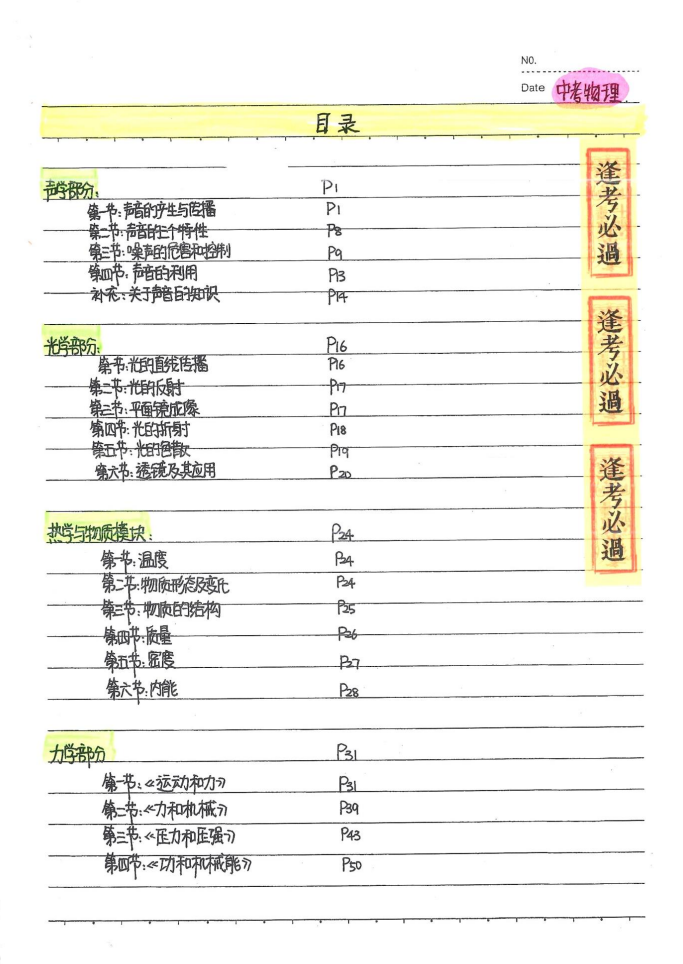 NO.
Date 中考物理
目录
声学部分: P1
第一节:声音的产生与传播 P1
第二节:声音的三个特性 P8
第三节:噪声的危害和控制 P9
第四节:声音的利用 P13
补充:关于声音的知识 P14
光学部分: P16
第一节:光的直线传播 P16
第二节:光的反射 P17
第三节:平面镜成像 P17
第四节:光的折射 P18
第五节:光的色散 P19
第六节:透镜及其应用 P20
热学与物质模块: P24
第一节:温度 P24
第二节:物质形态及变化 P24
第三节:物质的结构 P25
第四节:质量 P26
第五节:密度 P27
第六节:内能 P28
力学部分 P31
第一节:《运动和力》 P31
第二节:《力和机械》 P39
第三节:《压力和压强》 P43
第四节:《功和机械能》 P50
逢考必過
逢考必過
逢考必過